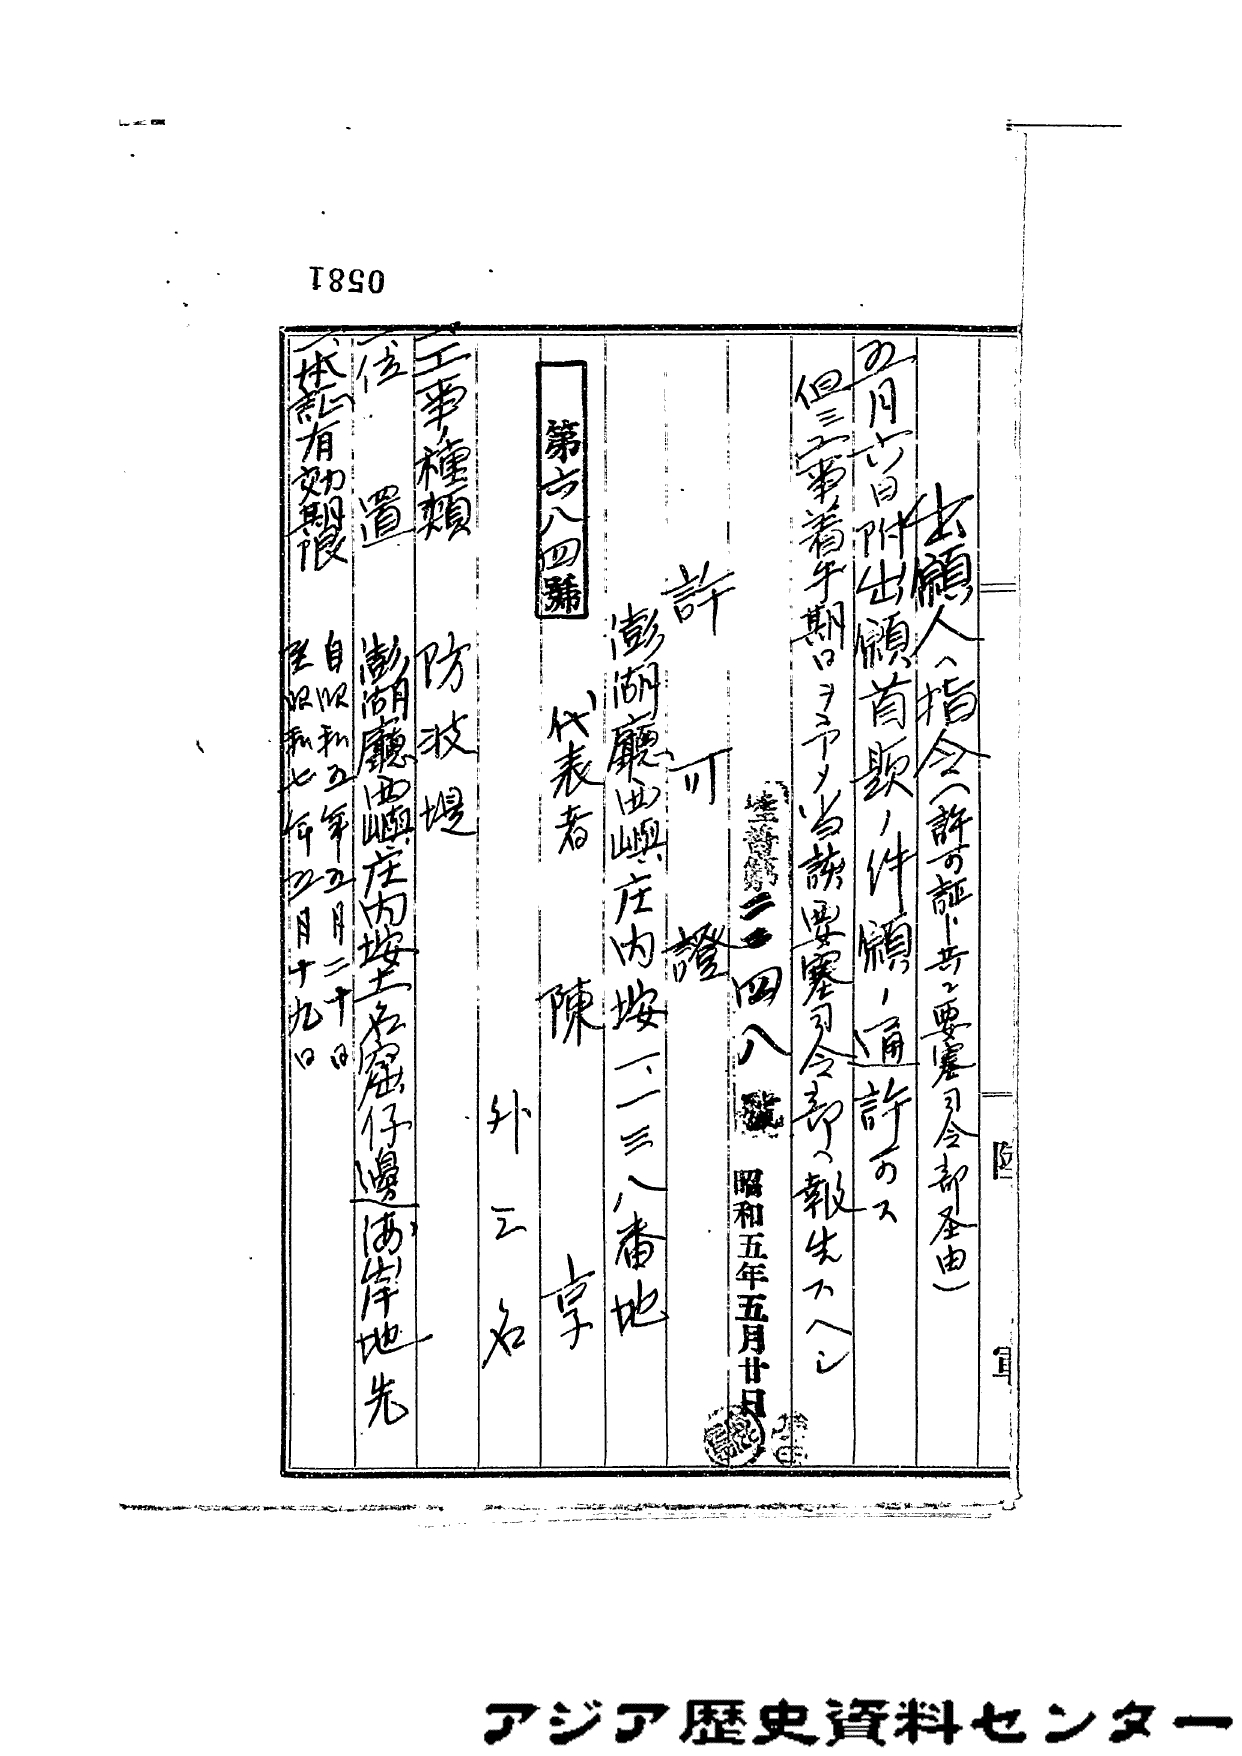 0581
出願人ヘ指令(許可証ト共ニ要塞司令部圣由)
五月六日附出願首題ノ件願ノ通許可ス
但シ工事着手期日ヲ予メ当該要塞司令部ヘ報告スヘシ
陸普第二二四八號 昭和五年五月廿日
許可證
澎湖廳西嶼庄内垵一、一三八番地
第六八四號
代表者 陳 享
外三名
一、工事ノ種類 防波堤
一、位置 澎湖廳西嶼庄内垵土名窟仔邊海岸地先
一、本証有効期限 自昭和五年五月二十日
至昭和七年五月十九日
陸軍
アジア歴史資料センター